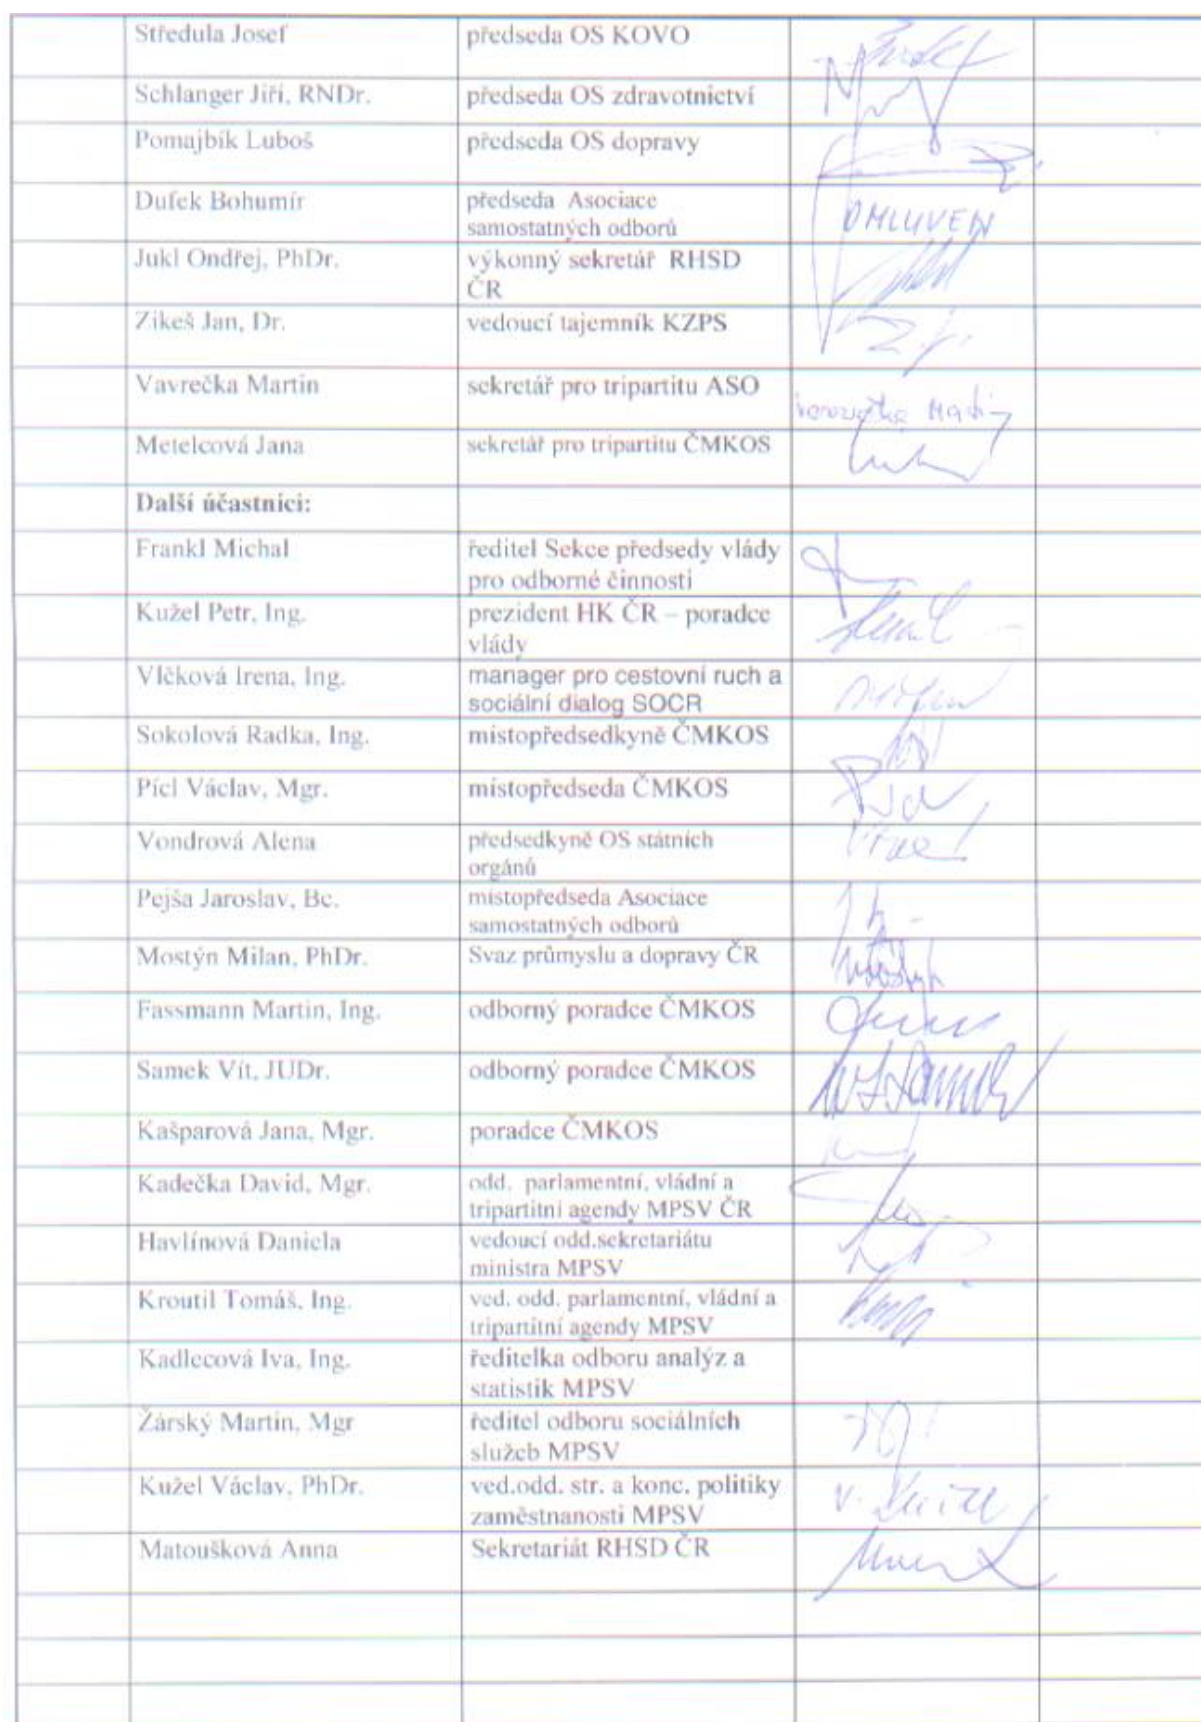 Středula Josef předseda OS KOVO
Schlanger Jiří, RNDr. předseda OS zdravotnictví
Pomajbík Luboš předseda OS dopravy
Dufek Bohumír předseda Asociace
samostatných odborů OMLUVEN
Jukl Ondřej, PhDr. výkonný sekretář RHSD
ČR
Zikeš Jan, Dr. vedoucí tajemník KZPS
Vavrečka Martin sekretář pro tripartitu ASO
Metelcová Jana sekretář pro tripartitu ČMKOS
Další účastníci:
Frankl Michal ředitel Sekce předsedy vlády
pro odborné činnosti
Kužel Petr, Ing. prezident HK ČR – poradce
vlády
Vlčková Irena, Ing. manager pro cestovní ruch a
sociální dialog SOCR
Sokolová Radka, Ing. místopředsedkyně ČMKOS
Pícl Václav, Mgr. místopředseda ČMKOS
Vondrová Alena předsedkyně OS státních
orgánů
Pejša Jaroslav, Bc. místopředseda Asociace
samostatných odborů
Mostýn Milan, PhDr. Svaz průmyslu a dopravy ČR
Fassmann Martin, Ing. odborný poradce ČMKOS
Samek Vít, JUDr. odborný poradce ČMKOS
Kašparová Jana, Mgr. poradce ČMKOS
Kadečka David, Mgr. odd. parlamentní, vládní a
tripartitní agendy MPSV ČR
Havlínová Daniela vedoucí odd.sekretariátu
ministra MPSV
Kroutil Tomáš, Ing. ved. odd. parlamentní, vládní a
tripartitní agendy MPSV
Kadlecová Iva, Ing. ředitelka odboru analýz a
statistik MPSV
Žárský Martin, Mgr ředitel odboru sociálních
služeb MPSV
Kužel Václav, PhDr. ved.odd. str. a konc. politiky
zaměstnanosti MPSV
Matoušková Anna Sekretariát RHSD ČR